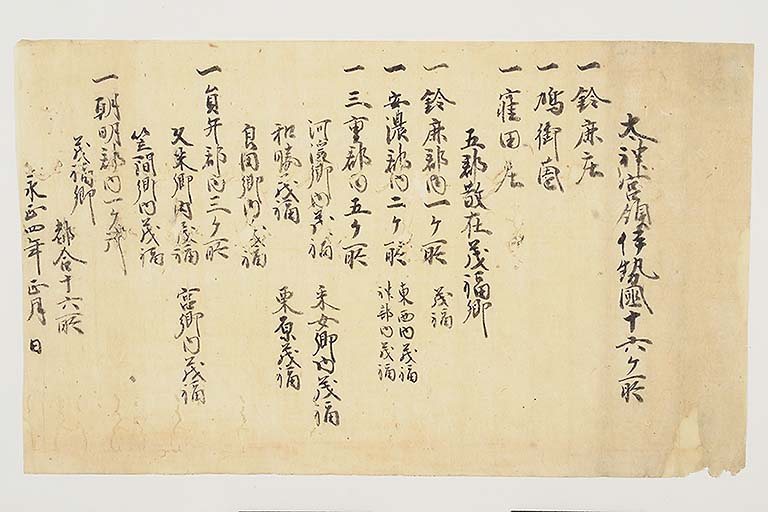 太神宮領伊勢國十六ヶ所
一 鈴鹿庄
一 鳩御園
一 窪田庄
五郡散在茂福郷
一 鈴鹿郡内一ヶ所 茂福
一 安濃郡内二ヶ所 東西内茂福
神部内茂福
一 三重郡内五ヶ所
河 郷内茂福 采女郷内茂福
和勝茂福 栗原茂福
良田郷内茂福
一 員弁郡内三ヶ所
久米郷内茂福 宮郷内茂福
笠間郷内茂福
一 朝明郡内一ヶ所
茂福郷
都合十六所
永正四年正月 日